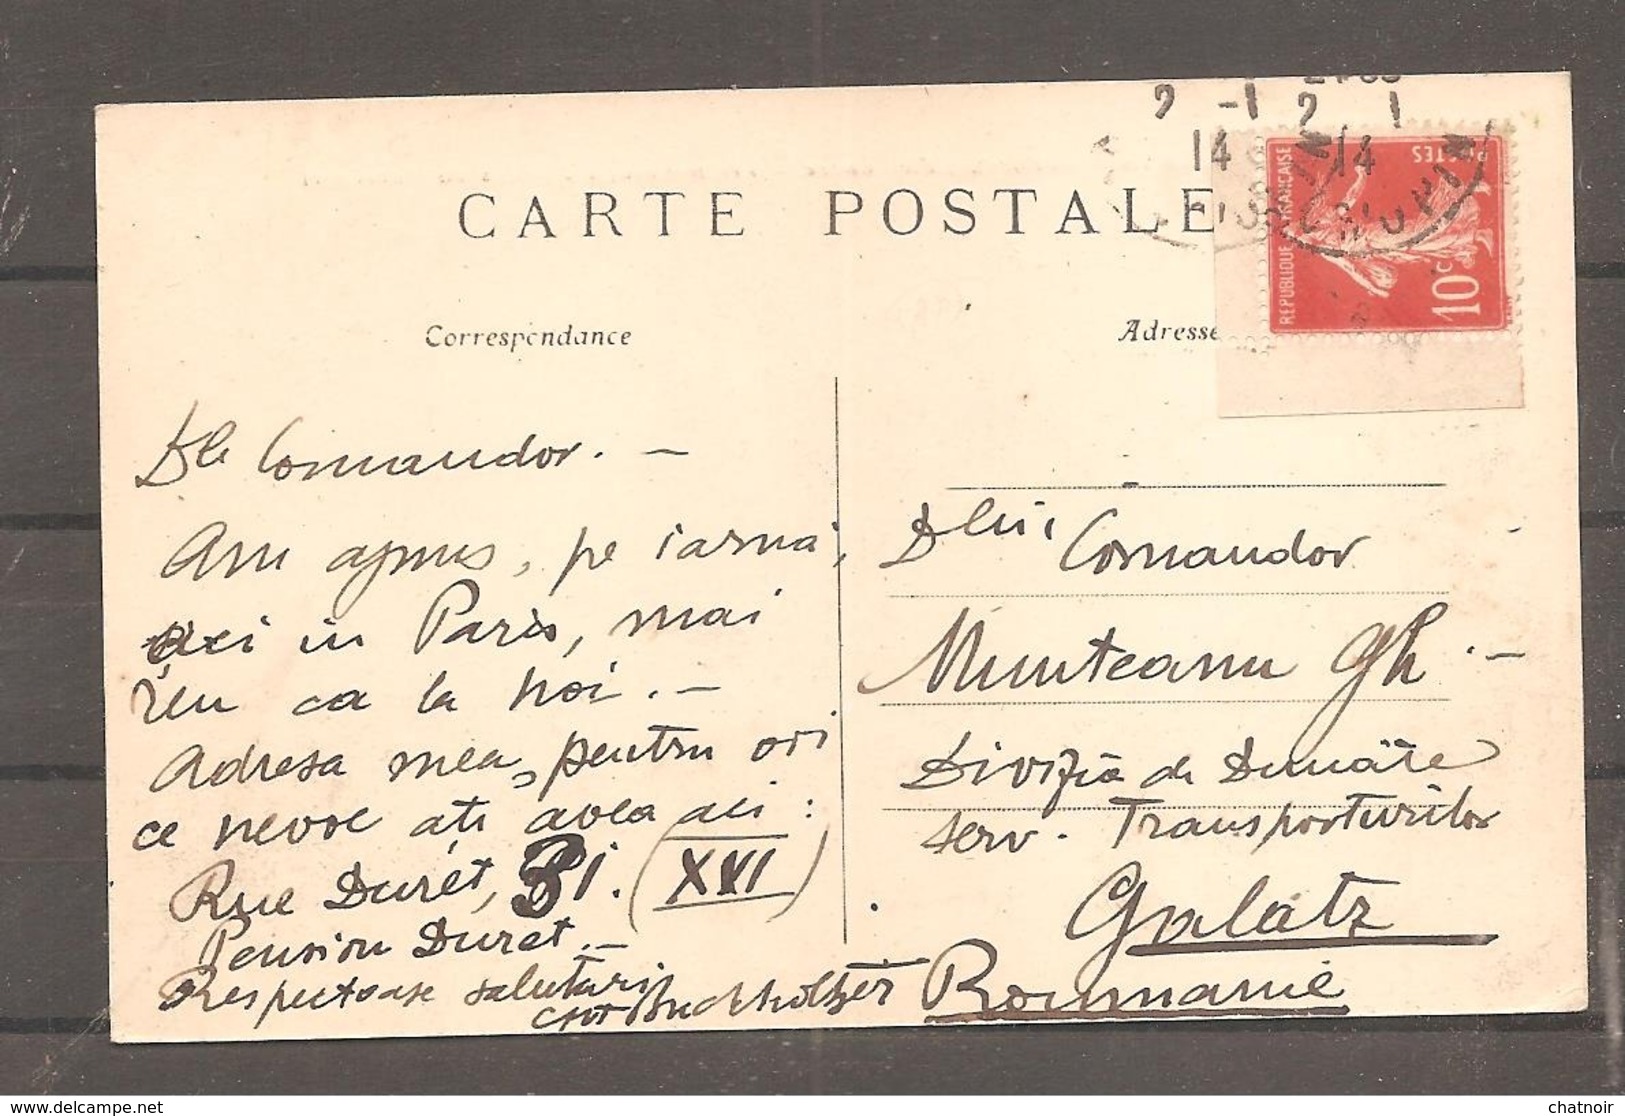 CARTE POSTALE
Correspondance
Adresse
2 -1
14
2 1
14
RÉPUBLIQUE FRANÇAISE
POSTES
10c
Dle Comandor. —
Am ajuns, pe iarna,
aici in Paris, mai
reu ca la noi. —
Adresa mea, pentru ori
ce nevoe ați avea aci:
Rue Duret, 31. (XVI)
Pension Duret. —
Respectoase salutari
Buchholtzer
Dlui,
Comandor
Munteanu Gh. —
Divizia de Dunăre
serv. Transporturilor
Galatz
Roumanie
© delcampe.net
chatnoir